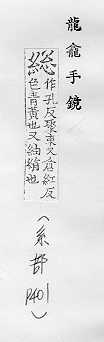 龍龕手鏡
総作孔反聚束又倉紅反
色青黄也又紬絹也
(糸部
P401)